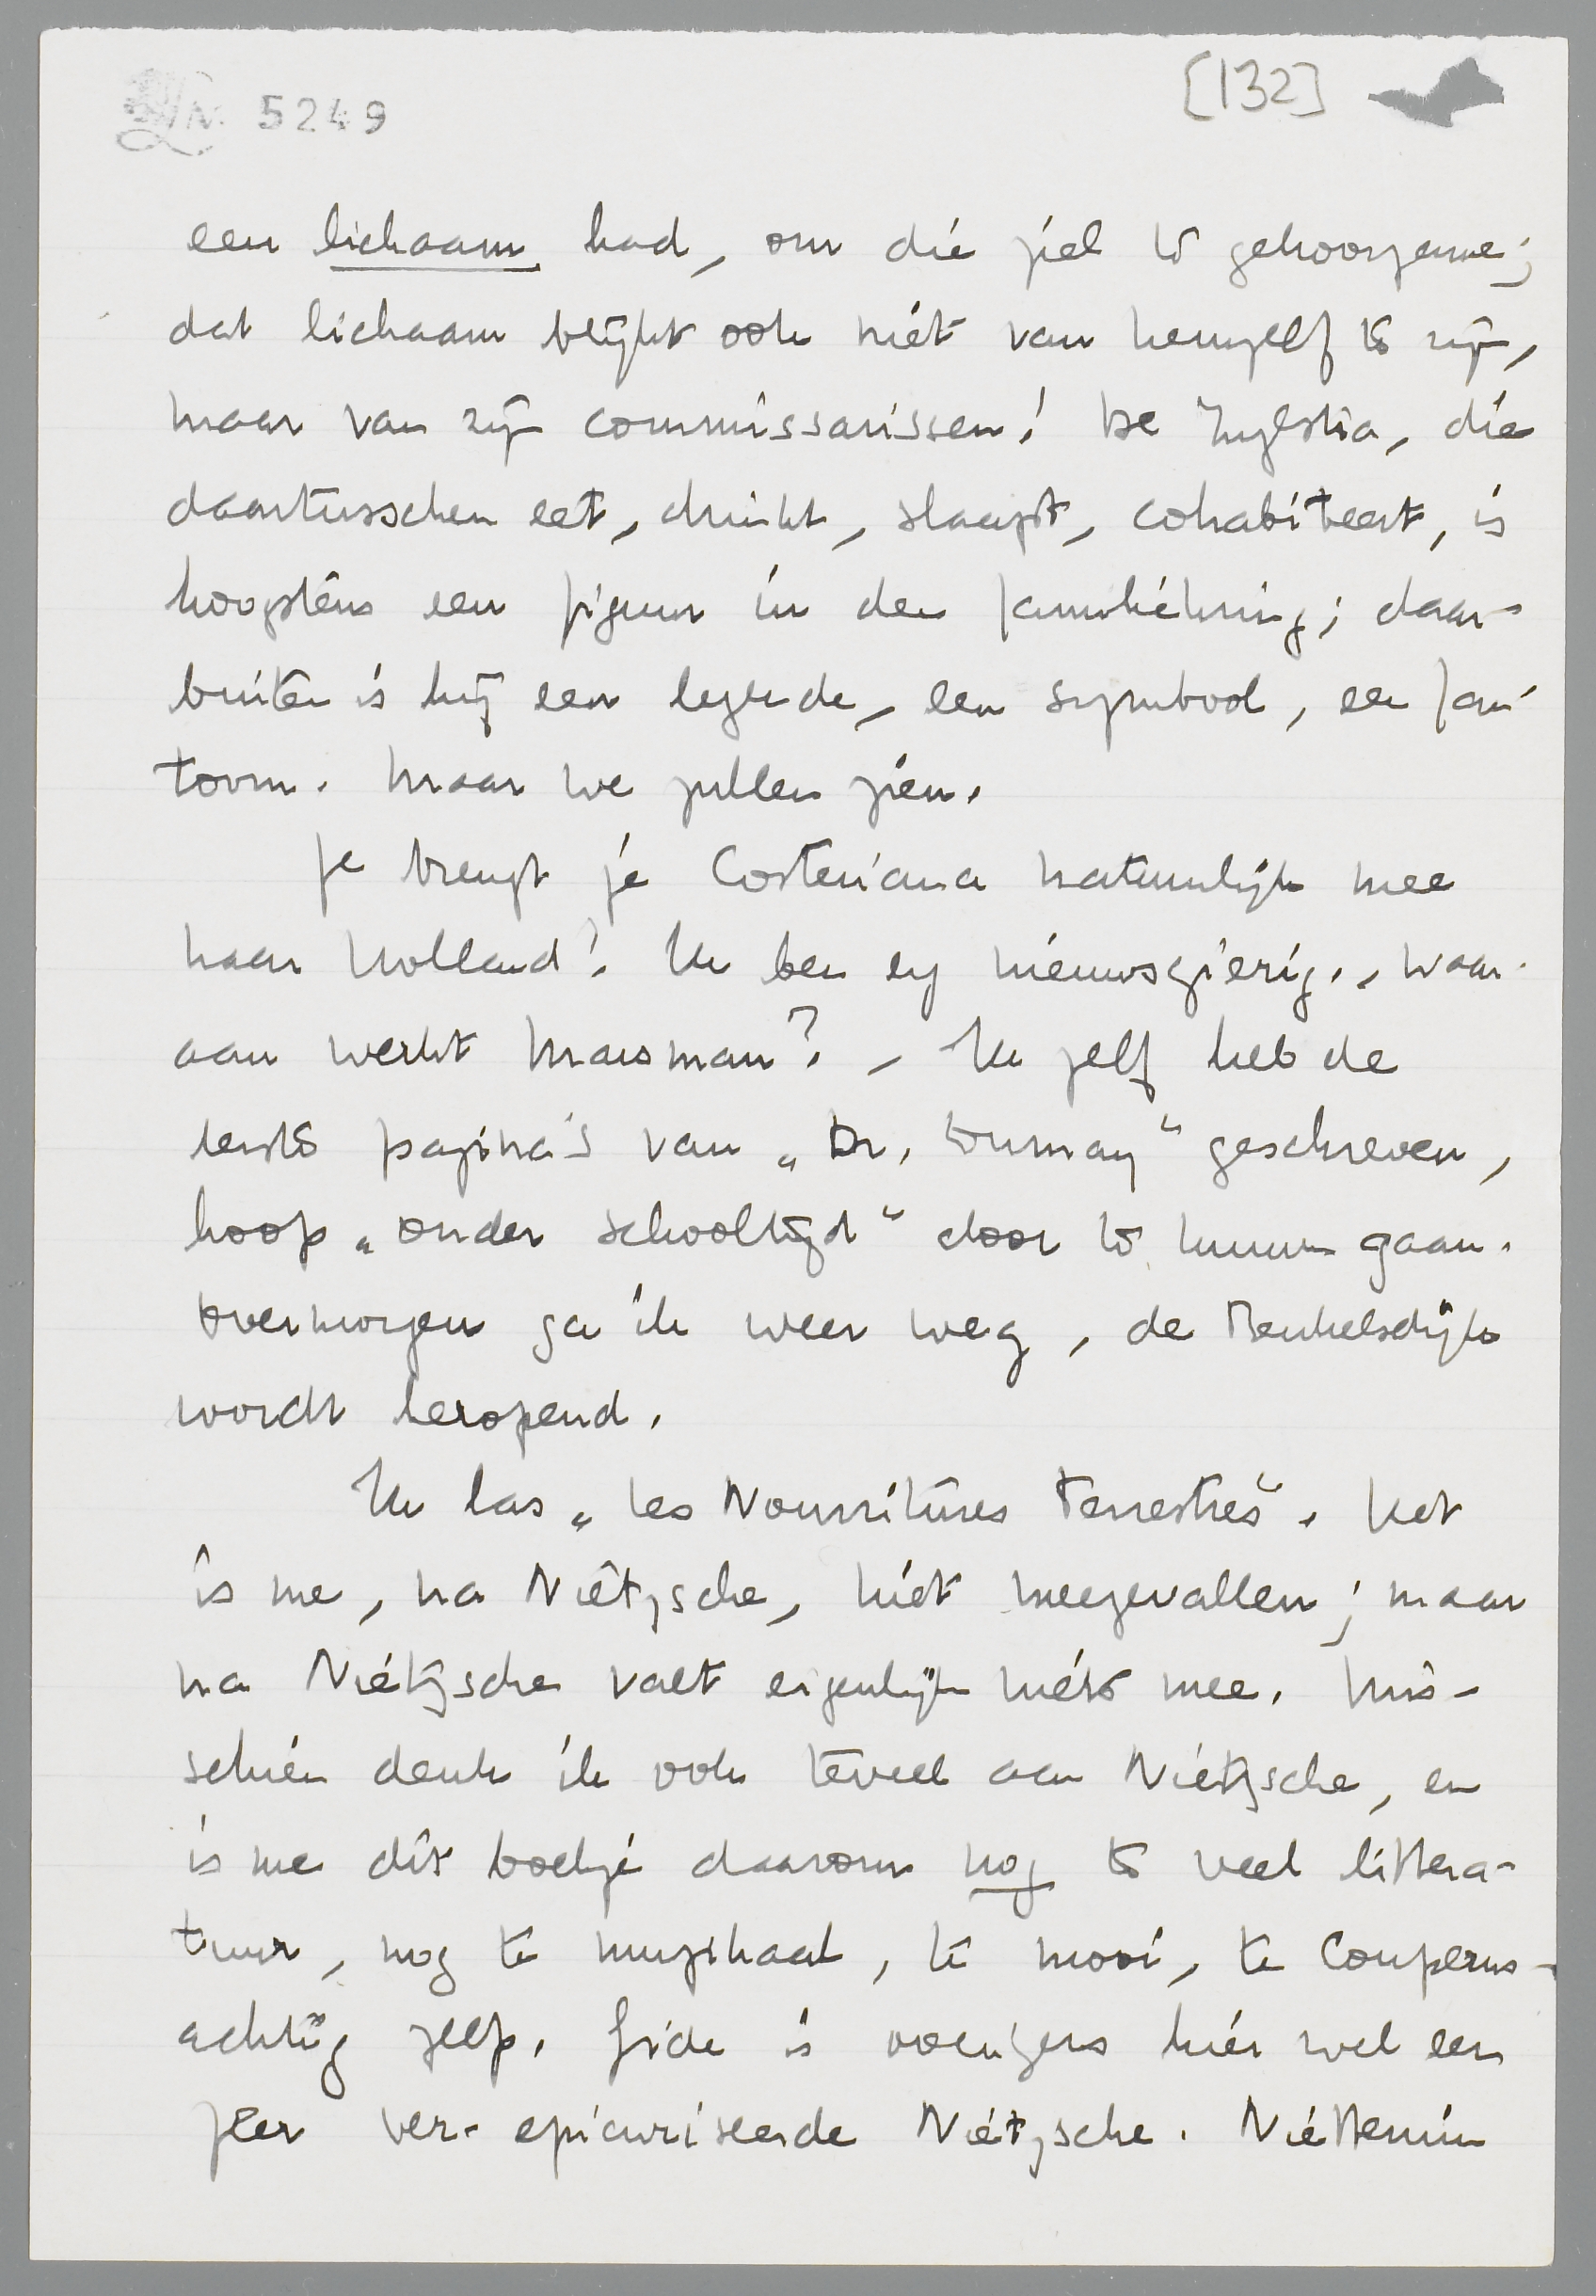 5249
[132]
een lichaam had, om die ziel te gehoorzamen;
dat lichaam blijkt ook niet van hemzelf te zijn,
maar van zijn commissarissen! De Zijlstra, die
daartusschen eet, drinkt, slaapt, cohabiteert, is
hoogstens een figuur in den familiekring; daar-
buiten is hij een legende, een symbool, een fan-
toom. Maar we zullen zien.
Je brengt je Costeriana natuurlijk mee
naar Holland? Ik ben erg nieuwsgierig. Waar-
aan werkt Marsman? – Ik zelf heb de
eerste pagina's van „Dr. Dumay“ geschreven,
hoop „onder schooltijd“ door te kunnen gaan.
Overmorgen ga ik weer weg, de Menkelsdijk
wordt heropend.
Ik las „Les Nourritures Terrestres“. Het
is me, na Nietzsche, niet meegevallen; maar
na Nietzsche valt eigenlijk niets mee. Mis-
schien denk ik ook teveel aan Nietzsche, en
is me dit boekje daarom nog te veel littera-
tuur, nog te muzikaal, te mooi, te Couperus-
achtig zelfs. Gide is overigens hier wel een
zeer ver-epicuriseerde Nietzsche. Niettemin